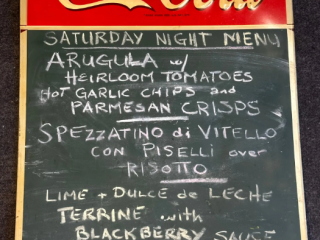 Cola
SATURDAY NIGHT MENU
ARUGULA w/
HEIRLOOM TOMATOES
HOT GARLIC CHIPS and
PARMESAN CRISPS
SPEZZATINO di VITELLO
CON PISELLI over
RISOTTO
LIME + DULCE de LECHE
TERRINE with
BLACKBERRY SAUCE